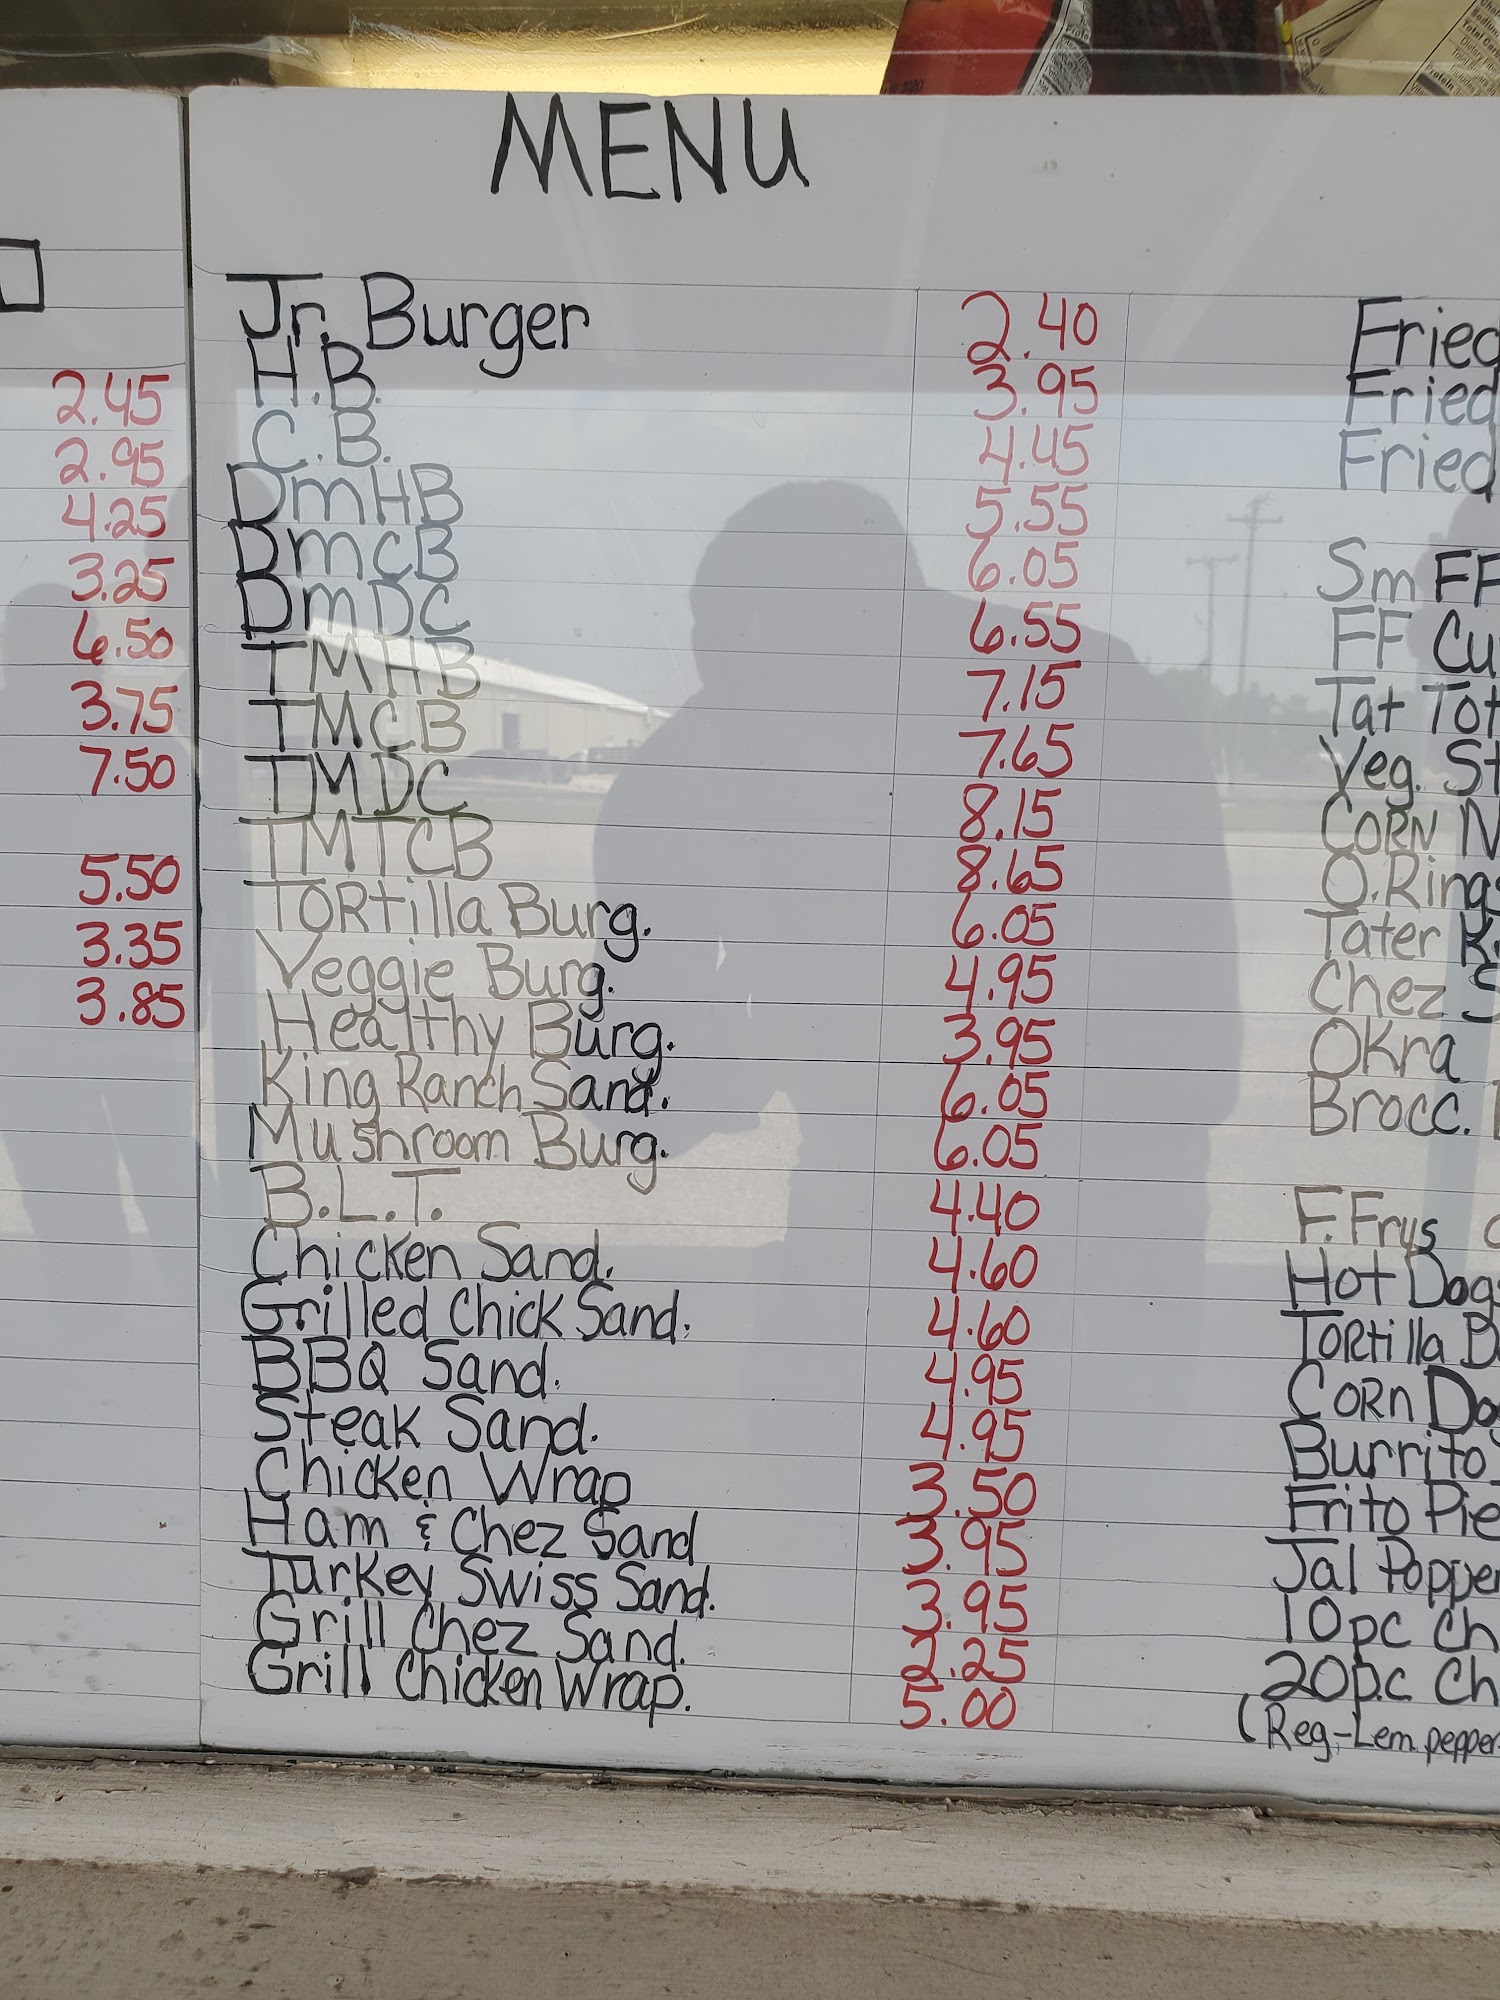 MENU
2.45
2.95
4.25
3.25
6.50
3.75
7.50
5.50
3.35
3.85
Jr. Burger 2.40
H.B. 3.95
C.B. 4.45
DmHB 5.55
DmcB 6.05
DmDC 6.55
TMHB 7.15
TMCB 7.65
TMDC 8.15
TMTCB 8.65
Tortilla Burg. 6.05
Veggie Burg. 4.95
Healthy Burg. 3.95
King Ranch Sand. 6.05
Mushroom Burg. 6.05
B.L.T. 4.40
Chicken Sand. 4.60
Grilled Chick Sand. 4.60
BBQ Sand. 4.95
Steak Sand. 4.95
Chicken Wrap 3.50
Ham & Chez Sand 3.95
Turkey Swiss Sand. 3.95
Grill Chez Sand. 2.25
Grill Chicken Wrap. 5.00
Fried
Fried
Fried
Sm FF
FF Cu
Tat Tot
Veg. St
CORN N
O.Rings
Tater
Chez S
OKra
Brocc.
F.Frys
Hot Dogs
Tortilla
CORN Dog
Burrito
Frito Pie
Jal Popper
10pc Ch
20p.c Ch
(Reg-Lem pepper